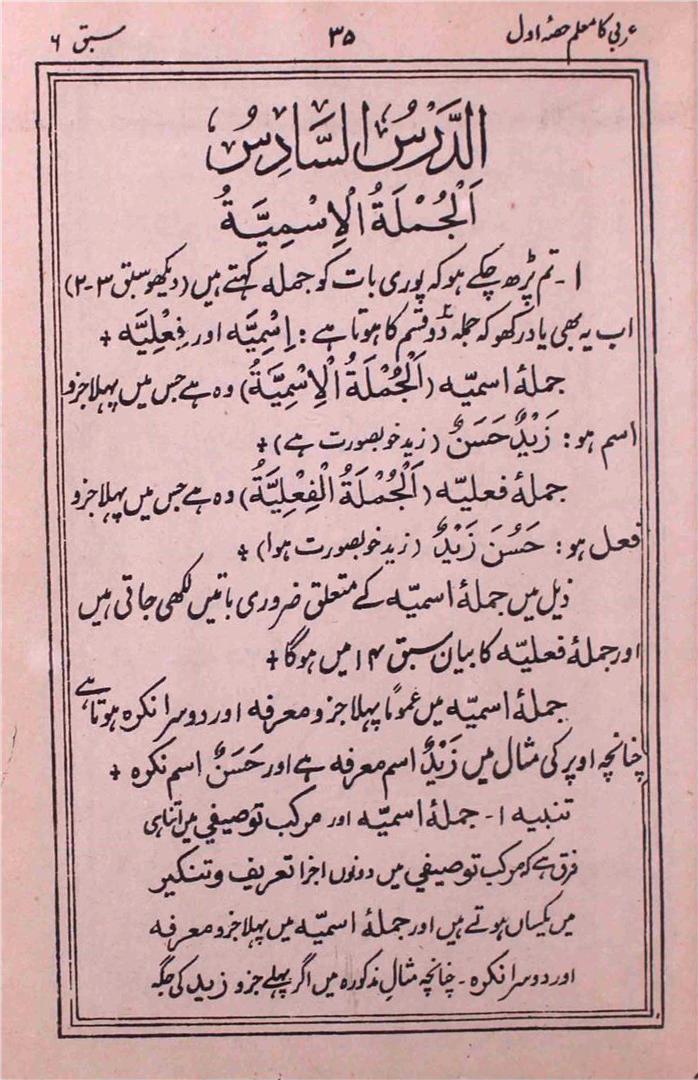 عربی کا معلم حصۂ اول ۳۵ سبق ۶
الدَّرْسُ السَّادِسُ
اَلْجُمْلَةُ الْاِسْمِيَّةُ
۱۔ تم پڑھ چکے ہو کہ پوری بات کو جملہ کہتے ہیں (دیکھو سبق ۳-۲)
اب یہ بھی یاد رکھو کہ جملہ دو قسم کا ہوتا ہے: اِسْمِیَّه اور فِعْلِیَّه +
جملۂ اسمیّه (اَلْجُمْلَةُ الْاِسْمِيَّةُ) وہ ہے جس میں پہلا جزو
اسم ہو: زَيْدٌ حَسَنٌ (زید خوبصورت ہے) +
جملۂ فعلیّه (اَلْجُمْلَةُ الْفِعْلِيَّةُ) وہ ہے جس میں پہلا جزو
فعل ہو: حَسُنَ زَيْدٌ (زید خوبصورت ہوا) +
ذیل میں جملۂ اسمیّه کے متعلق ضروری باتیں لکھی جاتی ہیں
اور جملۂ فعلیّه کا بیان سبق ۱۴ میں ہوگا +
جملۂ اسمیّه میں عمومًا پہلا جزو معرفه اور دوسرا نکرہ ہوتا ہے
چنانچہ اوپر کی مثال میں زَيْدٌ اسم معرفه ہے اور حَسَنٌ اسم نکرہ +
تنبیه ۱۔ جملۂ اسمیّه اور مرکب توصیفي میں اتنا ہی
فرق ہے کہ مرکب توصیفي میں دونوں اجزا تعریف و تنکیر
میں یکساں ہوتے ہیں اور جملۂ اسمیّه میں پہلا جزو معرفه
اور دوسرا نکرہ۔ چنانچہ مثالِ مذکورہ میں اگر پہلے جزو زید کی جگہ